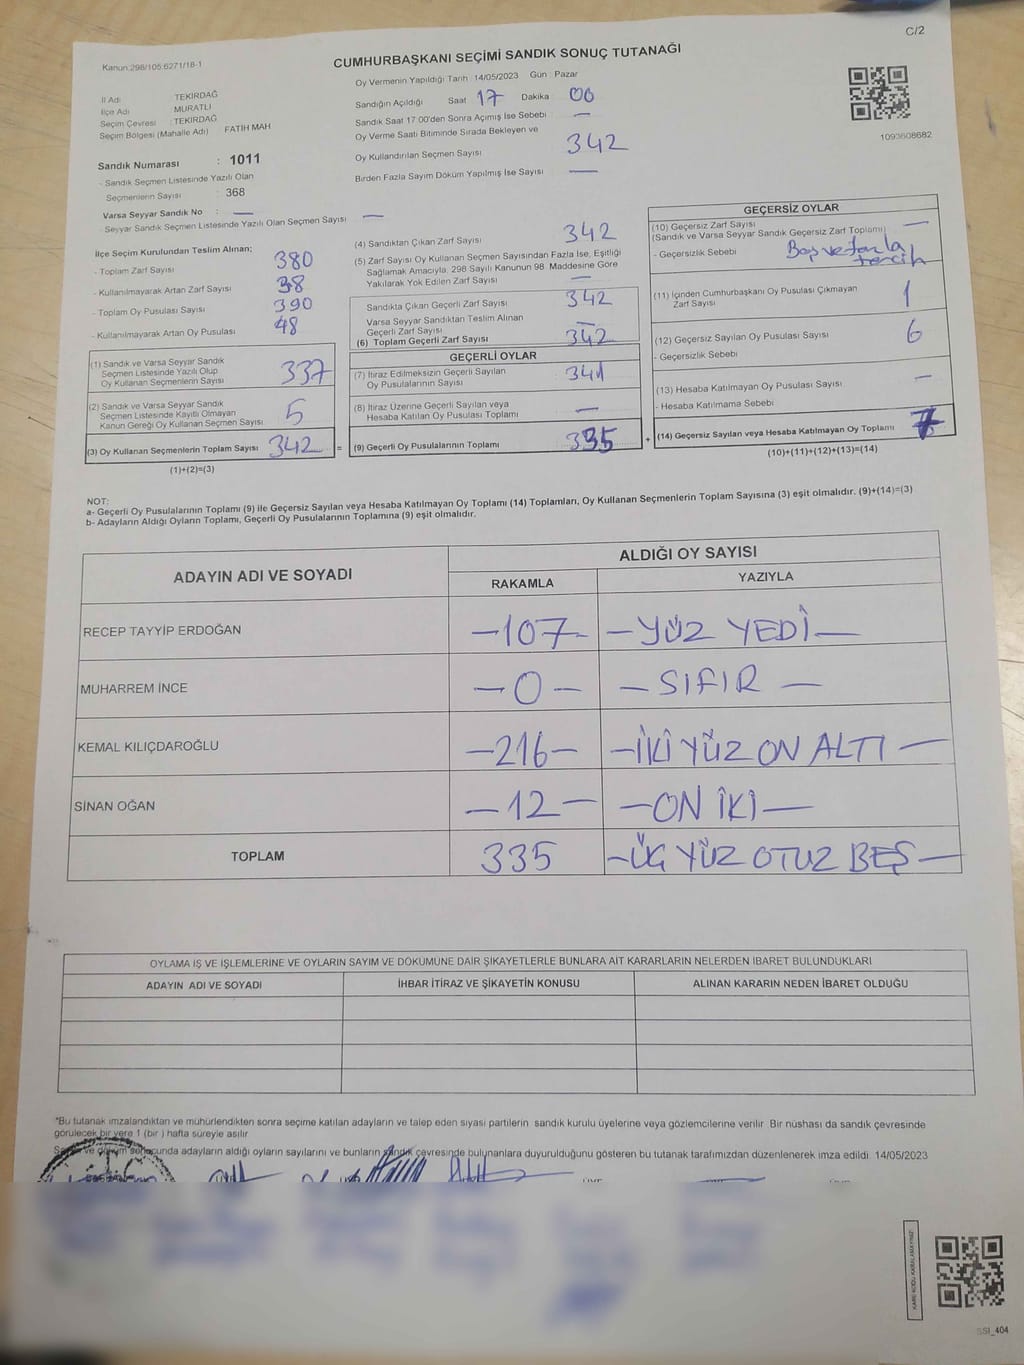 C/2
Kanun:298/105.6271/18-1
CUMHURBAŞKANI SEÇİMİ SANDIK SONUÇ TUTANAĞI
Oy Vermenin Yapıldığı Tarih : 14/05/2023 Gün Pazar
İl Adı : TEKİRDAĞ
İlçe Adı : MURATLI
Seçim Çevresi : TEKİRDAĞ
Seçim Bölgesi (Mahalle Adı) FATİH MAH
Sandık Numarası : 1011
- Sandık Seçmen Listesinde Yazılı Olan
Seçmenlerin Sayısı : 368
Varsa Seyyar Sandık No : —
- Seyyar Sandık Seçmen Listesinde Yazılı Olan Seçmen Sayısı : —
Sandığın Açıldığı Saat 17 Dakika 00
Sandık Saat 17:00'den Sonra Açımış İse Sebebi : —
Oy Verme Saati Bitiminde Sırada Bekleyen ve
Oy Kullandırılan Seçmen Sayısı 342
Birden Fazla Sayım Döküm Yapılmış İse Sayısı : —
1093608682
İlçe Seçim Kurulundan Teslim Alınan:
- Toplam Zarf Sayısı 380
- Kullanılmayarak Artan Zarf Sayısı 38
- Toplam Oy Pusulası Sayısı 390
- Kullanılmayarak Artan Oy Pusulası 48
(1) Sandık ve Varsa Seyyar Sandık
Seçmen Listesinde Yazılı Olup
Oy Kullanan Seçmenlerin Sayısı 337
(2) Sandık ve Varsa Seyyar Sandık
Seçmen Listesinde Kayıtlı Olmayan
Kanun Gereği Oy Kullanan Seçmen Sayısı 5
(3) Oy Kullanan Seçmenlerin Toplam Sayısı 342 =
(1)+(2)=(3)
(4) Sandıktan Çıkan Zarf Sayısı 342
(5) Zarf Sayısı Oy Kullanan Seçmen Sayısından Fazla İse, Eşitliği
Sağlamak Amacıyla, 298 Sayılı Kanunun 98. Maddesine Göre
Yakılarak Yok Edilen Zarf Sayısı —
Sandıkta Çıkan Geçerli Zarf Sayısı 342
Varsa Seyyar Sandıktan Teslim Alınan
Geçerli Zarf Sayısı —
(6) Toplam Geçerli Zarf Sayısı 342
GEÇERLİ OYLAR
(7) İtiraz Edilmeksizin Geçerli Sayılan
Oy Pusulalarının Sayısı 341
(8) İtiraz Üzerine Geçerli Sayılan veya
Hesaba Katılan Oy Pusulası Toplamı —
(9) Geçerli Oy Pusulalarının Toplamı 335 +
GEÇERSİZ OYLAR
(10) Geçersiz Zarf Sayısı —
(Sandık ve Varsa Seyyar Sandık Geçersiz Zarf Toplamı)
- Geçersizlik Sebebi Boş ve fazla
tercih
(11) İçinden Cumhurbaşkanı Oy Pusulası Çıkmayan
Zarf Sayısı 1
(12) Geçersiz Sayılan Oy Pusulası Sayısı 6
- Geçersizlik Sebebi
(13) Hesaba Katılmayan Oy Pusulası Sayısı —
- Hesaba Katılmama Sebebi
(14) Geçersiz Sayılan veya Hesaba Katılmayan Oy Toplamı 7
(10)+(11)+(12)+(13)=(14)
NOT:
a- Geçerli Oy Pusulalarının Toplamı (9) ile Geçersiz Sayılan veya Hesaba Katılmayan Oy Toplamı (14) Toplamları, Oy Kullanan Seçmenlerin Toplam Sayısına (3) eşit olmalıdır. (9)+(14)=(3)
b- Adayların Aldığı Oyların Toplamı, Geçerli Oy Pusulalarının Toplamına (9) eşit olmalıdır.
ADAYIN ADI VE SOYADI ALDIĞI OY SAYISI
RAKAMLA YAZIYLA
RECEP TAYYİP ERDOĞAN —107— —YÜZ YEDİ—
MUHARREM İNCE —0— —SIFIR—
KEMAL KILIÇDAROĞLU —216— —İKİ YÜZ ON ALTI—
SİNAN OĞAN —12— —ON İKİ—
TOPLAM 335 —ÜÇ YÜZ OTUZ BEŞ—
OYLAMA İŞ VE İŞLEMLERİNE VE OYLARIN SAYIM VE DÖKÜMÜNE DAİR ŞİKAYETLERLE BUNLARA AİT KARARLARIN NELERDEN İBARET BULUNDUKLARI
ADAYIN ADI VE SOYADI İHBAR İTİRAZ VE ŞİKAYETİN KONUSU ALINAN KARARIN NEDEN İBARET OLDUĞU
*Bu tutanak imzalandıktan ve mühürlendikten sonra seçime katılan adayların ve talep eden siyasi partilerin sandık kurulu üyelerine veya gözlemcilerine verilir. Bir nüshası da sandık çevresinde
görülecek bir yere 1 (bir ) hafta süreyle asılır.
Sayım ve döküm sonucunda adayların aldığı oyların sayılarını ve bunların sandık çevresinde bulunanlara duyurulduğunu gösteren bu tutanak tarafımızdan düzenlenerek imza edildi. 14/05/2023
T.C.
KARE KODU KARALAMAYINIZ!
SSI_404